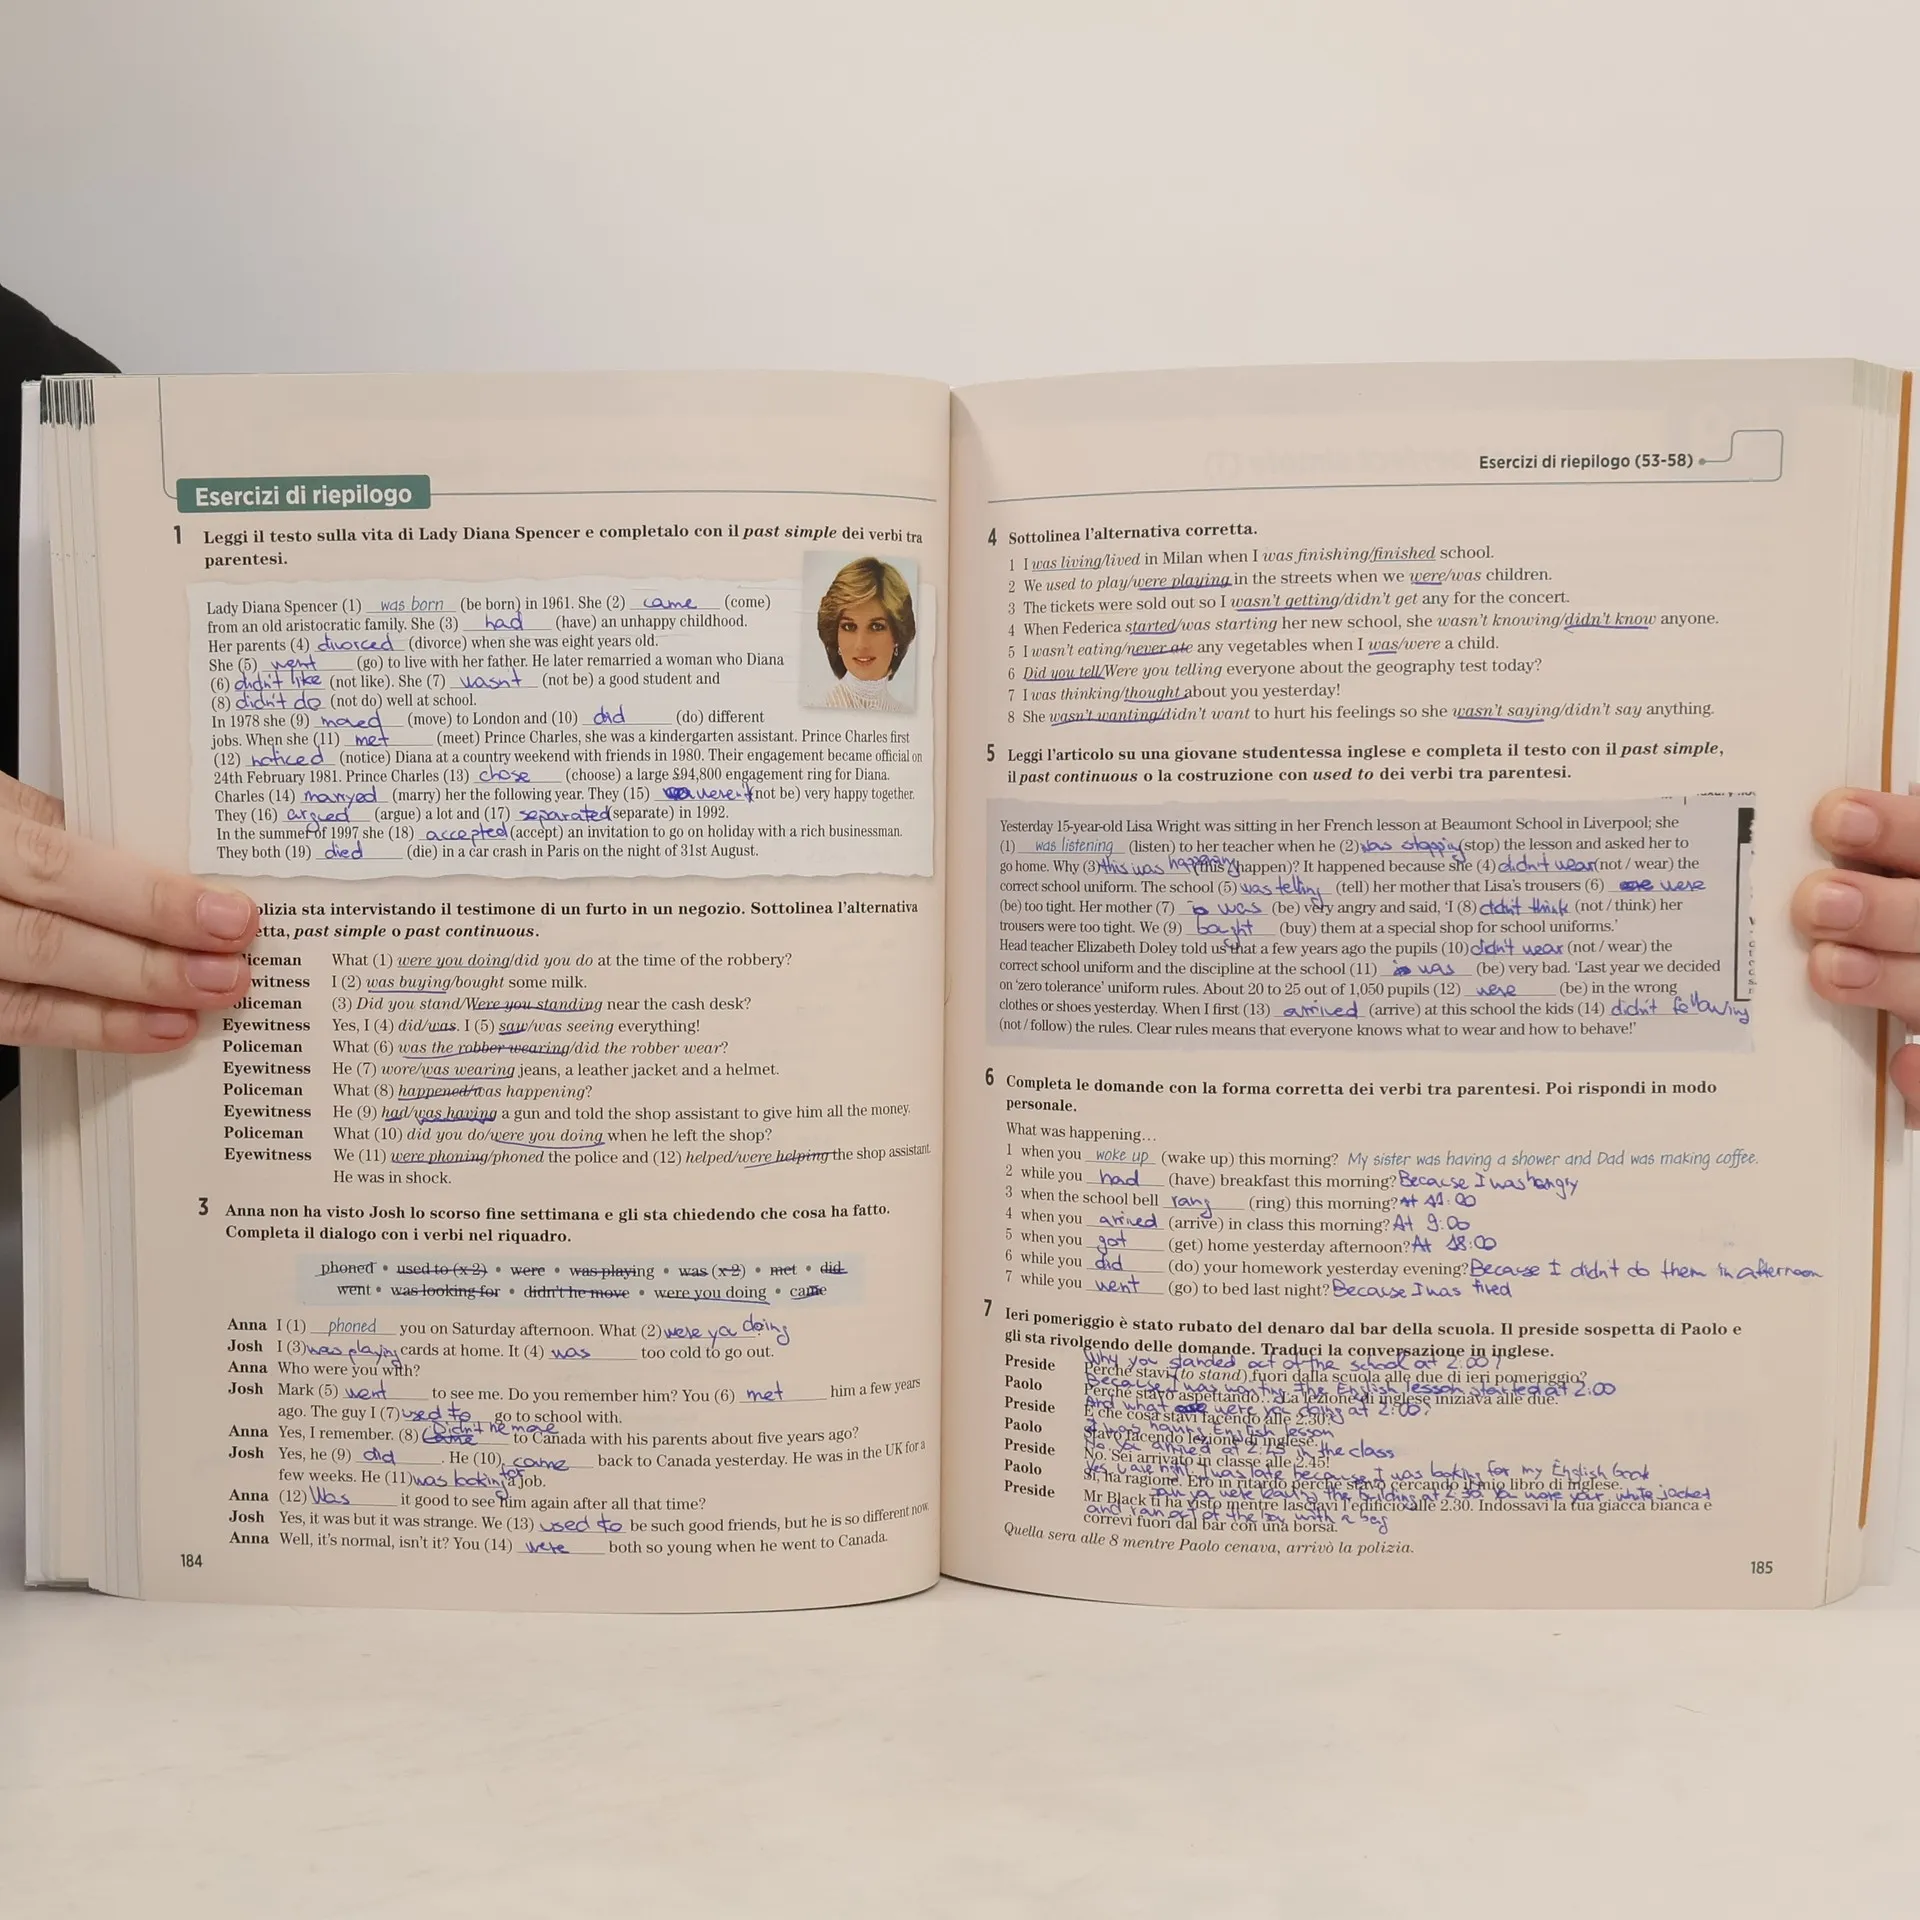 Esercizi di riepilogo
1 Leggi il testo sulla vita di Lady Diana Spencer e completalo con il past simple dei verbi tra
parentesi.
Lady Diana Spencer (1) was born (be born) in 1961. She (2) came (come)
from an old aristocratic family. She (3) had (have) an unhappy childhood.
Her parents (4) divorced (divorce) when she was eight years old.
She (5) went (go) to live with her father. He later remarried a woman who Diana
(6) didn't like (not like). She (7) wasn't (not be) a good student and
(8) didn't do (not do) well at school.
In 1978 she (9) moved (move) to London and (10) did (do) different
jobs. When she (11) met (meet) Prince Charles, she was a kindergarten assistant. Prince Charles first
(12) noticed (notice) Diana at a country weekend with friends in 1980. Their engagement became official on
24th February 1981. Prince Charles (13) chose (choose) a large £94,800 engagement ring for Diana.
Charles (14) marryed (marry) her the following year. They (15) weren't (not be) very happy together.
They (16) argued (argue) a lot and (17) separated (separate) in 1992.
In the summer of 1997 she (18) accepted (accept) an invitation to go on holiday with a rich businessman.
They both (19) died (die) in a car crash in Paris on the night of 31st August.
olizia sta intervistando il testimone di un furto in un negozio. Sottolinea l'alternativa
etta, past simple o past continuous.
liceman What (1) were you doing/did you do at the time of the robbery?
witness I (2) was buying/bought some milk.
oliceman (3) Did you stand/Were you standing near the cash desk?
Eyewitness Yes, I (4) did/was. I (5) saw/was seeing everything!
Policeman What (6) was the robber wearing/did the robber wear?
Eyewitness He (7) wore/was wearing jeans, a leather jacket and a helmet.
Policeman What (8) happened/was happening?
Eyewitness He (9) had/was having a gun and told the shop assistant to give him all the money.
Policeman What (10) did you do/were you doing when he left the shop?
Eyewitness We (11) were phoning/phoned the police and (12) helped/were helping the shop assistant.
He was in shock.
3 Anna non ha visto Josh lo scorso fine settimana e gli sta chiedendo che cosa ha fatto.
Completa il dialogo con i verbi nel riquadro.
phoned • used to (x 2) • were • was playing • was (x 2) • met • did
went • was looking for • didn't he move • were you doing • came
Anna I (1) phoned you on Saturday afternoon. What (2) were you doing?
Josh I (3) was playing cards at home. It (4) was too cold to go out.
Anna Who were you with?
Josh Mark (5) went to see me. Do you remember him? You (6) met him a few years
ago. The guy I (7) used to go to school with.
Anna Yes, I remember. (8) Didn't he move to Canada with his parents about five years ago?
Josh Yes, he (9) did. He (10) came back to Canada yesterday. He was in the UK for a
few weeks. He (11) was looking for a job.
Anna (12) Was it good to see him again after all that time?
Josh Yes, it was but it was strange. We (13) used to be such good friends, but he is so different now.
Anna Well, it's normal, isn't it? You (14) were both so young when he went to Canada.
184
Esercizi di riepilogo (53-58)
4 Sottolinea l'alternativa corretta.
1 I was living/lived in Milan when I was finishing/finished school.
2 We used to play/were playing in the streets when we were/was children.
3 The tickets were sold out so I wasn't getting/didn't get any for the concert.
4 When Federica started/was starting her new school, she wasn't knowing/didn't know anyone.
5 I wasn't eating/never ate any vegetables when I was/were a child.
6 Did you tell/Were you telling everyone about the geography test today?
7 I was thinking/thought about you yesterday!
8 She wasn't wanting/didn't want to hurt his feelings so she wasn't saying/didn't say anything.
5 Leggi l'articolo su una giovane studentessa inglese e completa il testo con il past simple,
il past continuous o la costruzione con used to dei verbi tra parentesi.
Yesterday 15-year-old Lisa Wright was sitting in her French lesson at Beaumont School in Liverpool; she
(1) was listening (listen) to her teacher when he (2) was stopping (stop) the lesson and asked her to
go home. Why (3) this was happening (this / happen)? It happened because she (4) didn't wear (not / wear) the
correct school uniform. The school (5) was telling (tell) her mother that Lisa's trousers (6) were
(be) too tight. Her mother (7) was (be) very angry and said, 'I (8) didn't think (not / think) her
trousers were too tight. We (9) bought (buy) them at a special shop for school uniforms.'
Head teacher Elizabeth Doley told us that a few years ago the pupils (10) didn't wear (not / wear) the
correct school uniform and the discipline at the school (11) was (be) very bad. 'Last year we decided
on 'zero tolerance' uniform rules. About 20 to 25 out of 1,050 pupils (12) were (be) in the wrong
clothes or shoes yesterday. When I first (13) arrived (arrive) at this school the kids (14) didn't following
(not / follow) the rules. Clear rules means that everyone knows what to wear and how to behave!'
6 Completa le domande con la forma corretta dei verbi tra parentesi. Poi rispondi in modo
personale.
What was happening…
1 when you woke up (wake up) this morning? My sister was having a shower and Dad was making coffee.
2 while you had (have) breakfast this morning? Because I was hungry
3 when the school bell rang (ring) this morning? At 11:00
4 when you arrived (arrive) in class this morning? At 9:00
5 when you got (get) home yesterday afternoon? At 18:00
6 while you did (do) your homework yesterday evening? Because I didn't do them in afternoon
7 while you went (go) to bed last night? Because I was tired
7 Ieri pomeriggio è stato rubato del denaro dal bar della scuola. Il preside sospetta di Paolo e
gli sta rivolgendo delle domande. Traduci la conversazione in inglese.
Why you standed out of the school at 2:00?
Preside Perché stavi (to stand) fuori dalla scuola alle due di ieri pomeriggio?
Because I was waiting. The English lesson started at 2:00
Paolo Perché stavo aspettando… La lezione di inglese iniziava alle due.
And what were you doing at 2:00?
Preside E che cosa stavi facendo alle 2.30?
I was having English lesson
Paolo Stavo facendo lezione di inglese.
No. You arrived at 2:45 in the class
Preside No. Sei arrivato in classe alle 2.45!
Yes, u are right. I was late because I was looking for my English book
Paolo Sì, ha ragione. Ero in ritardo perché stavo cercando il mio libro di inglese.
you were leaving the building at 2:30. You wore your white jacket
Preside Mr Black ti ha visto mentre lasciavi l'edificio alle 2.30. Indossavi la tua giacca bianca e
and ran out of the bar with a bag
correvi fuori dal bar con una borsa.
Quella sera alle 8 mentre Paolo cenava, arrivò la polizia.
185